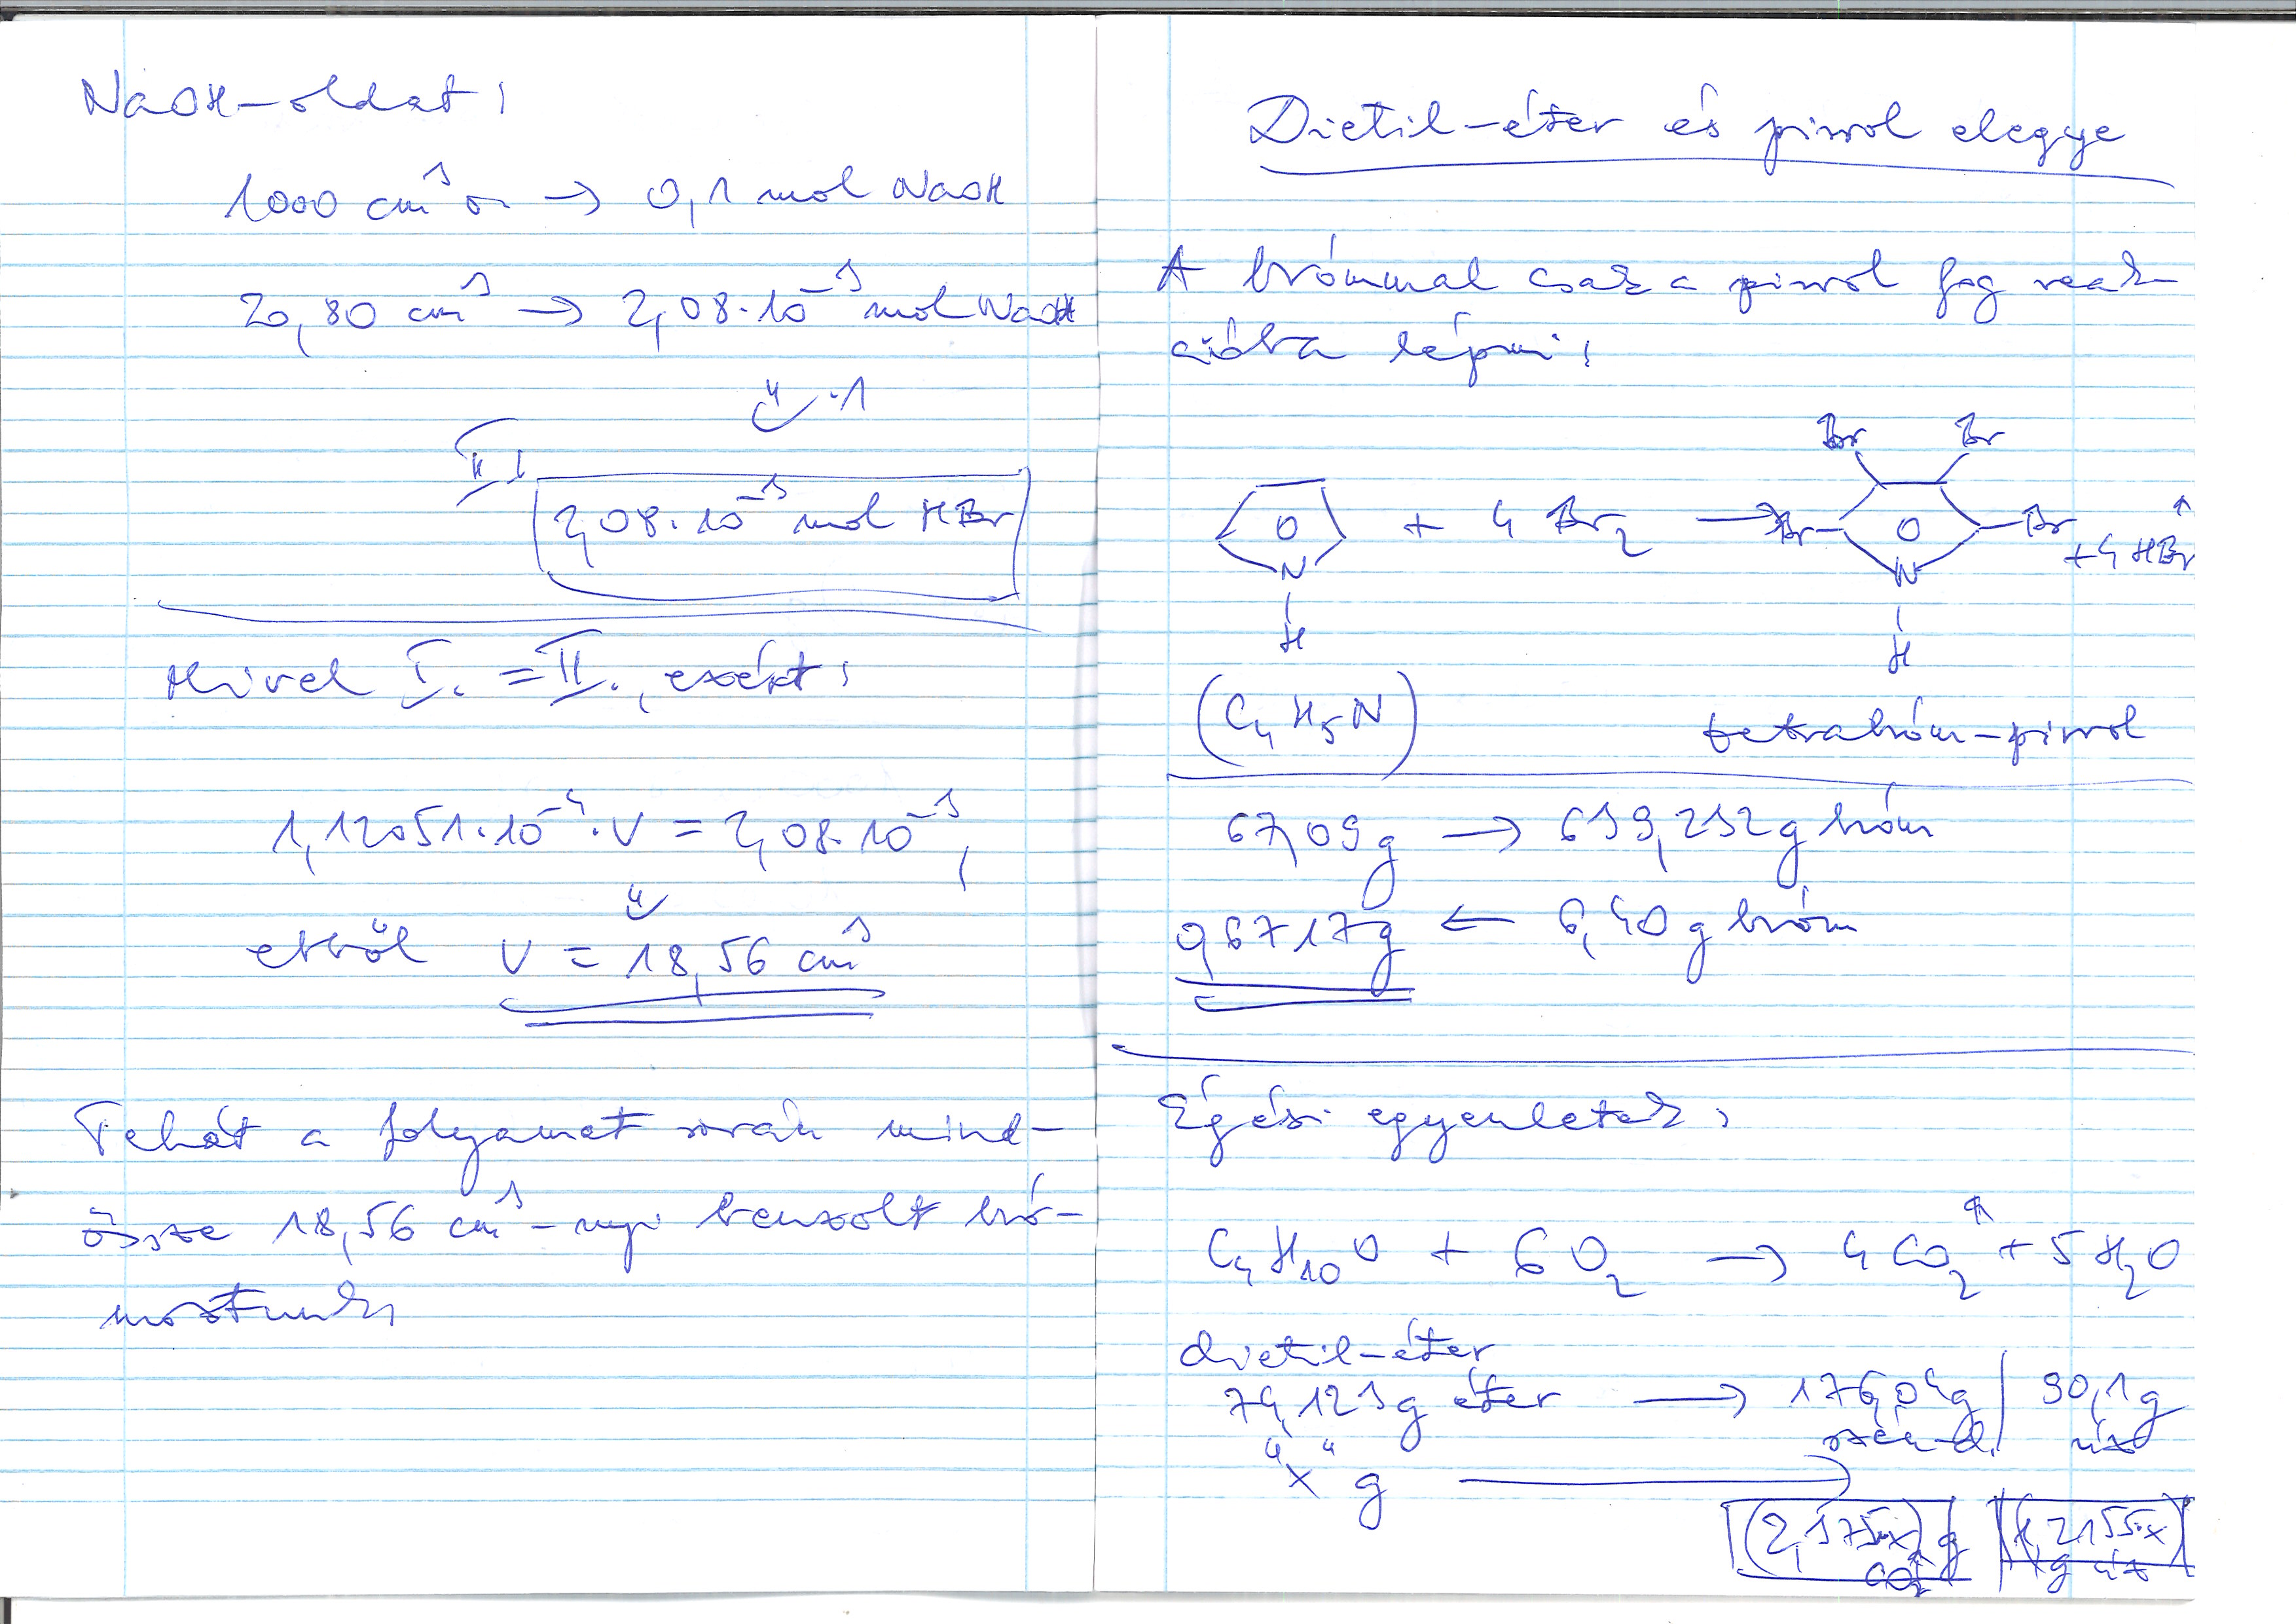 NaOH-oldat:
1000 cm³ → 0,1 mol NaOH
20,80 cm³ → 2,08·10⁻³ mol NaOH
·1
II.
2,08·10⁻³ mol HBr
Mivel I. = II., ezért:
1,12051·10⁻⁴·V = 2,08·10⁻³,
ebből V = 18,56 cm³
Tehát a folyamat során mind-
össze 18,56 cm³-nyi benzolt bró-
moztunk.
Dietil-éter és pirrol elegye
A brómmal csak a pirrol fog reak-
cióba lépni:
Br Br
O + 4 Br₂ → Br- O -Br + 4 HBr ↑
N N
H H
(C₄H₅N) tetrabróm-pirrol
67,09 g → 639,232 g bróm
0,6717 g ← 6,40 g bróm
Égési egyenletek:
C₄H₁₀O + 6 O₂ → 4 CO₂ ↑ + 5 H₂O
dietil-éter
74,123 g éter → 176,04 g | 90,1 g
szén-d. víz
"x" g →
(2,375·x) g (1,2155·x)
CO₂ g víz